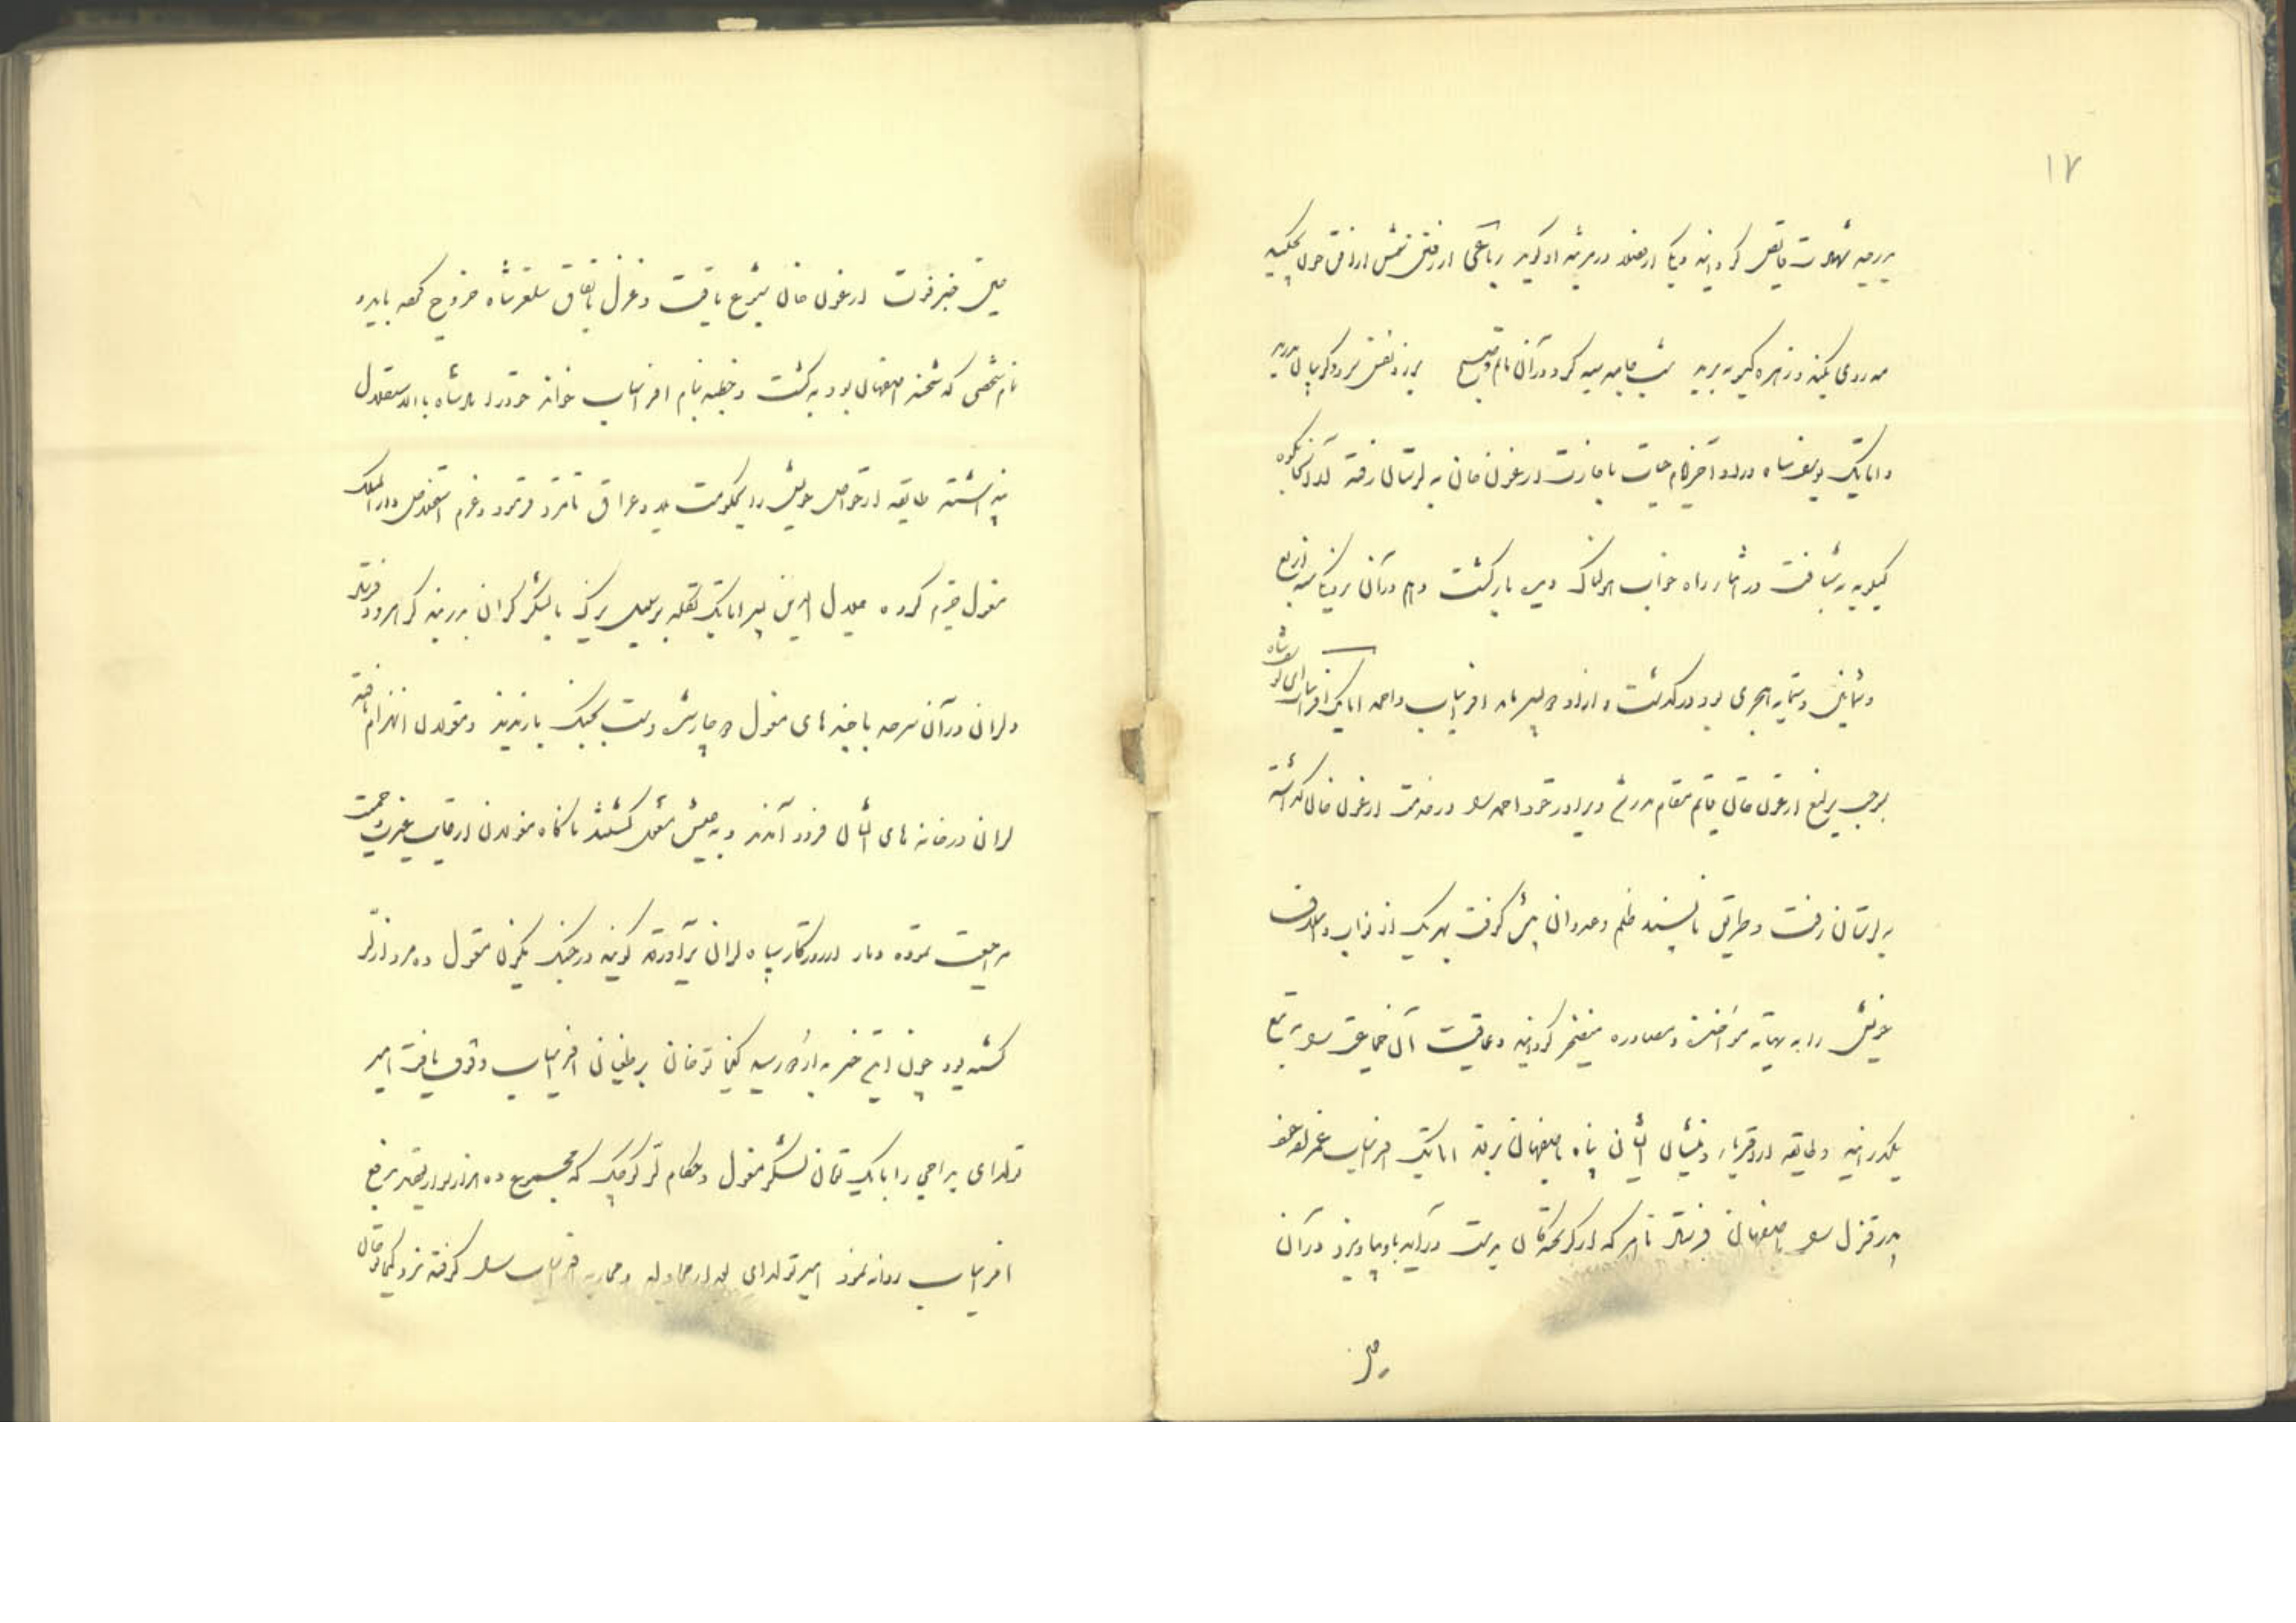 ۱۷
بدرجه شهادت فایض گردانید و یکی از فضلا در مرثیه او گوید رباعی از رفتن شمس از شفق خون بچکید
مه روی بکند و زهره گیسو ببرید شب جامه سیه کرد در آن ماتم و صبح برزد نفس سرد و گریبان بدرید
و اتابک یوسف شاه در اواخر ایام حیات باجازت ارغون خان به لرستان رفته از آنجا بکوه
کیلویه شتافت در اثنای راه خواب هولناک دیده بازگشت و هم در آن نزدیکی سنه اربع
و ثمانین و ستمایه هجری بود درگذشت و از او دو پسر ماند افراسیاب و احمد اتابک افراسیاب ابن یوسف شاه
بموجب یرلیغ ارغون خان قایم مقام پدر شد و برادر خود احمد را در خدمت ارغون خان گذاشته
به لرستان رفت و طریق ناپسند ظلم و عدوان پیش گرفت بهر یک از نواب و اسلاف
خویش را به بهانه مؤاخذت و مصادره گردانید و عاقبت آن جماعت را به تیغ
بگذرانید و طایفه از اقربای ایشان پناه باصفهان بردند اتابک افراسیاب عمزاده خود
قزل را باصفهان فرستاد تا هر که از گریختگان بدست درآید باو سپارند در آن
حین
حین خبر فوت ارغون خان شیوع یافت و قزل باتفاق سلغرشاه خروج کرده بایدو
نام شخصی که شحنه اصفهان بود بکشت و خطبه بنام افراسیاب خواند خود را پادشاه باستقلال
پنداشته طایفه از خواص خویش را بحکومت بلاد عراق نامزد فرمود و عزم استخلاص دار الملک
مغول جزم کرده جلال الدین پسر اتابک تکله برسبیل یزک با لشکر گران بدربند کرهرود فرستاد
و لران در آن سرحد با خیلهای مغول دوچار شده دست بجنگ یازیدند و مغولان انهزام یافته
لران در خانه های ایشان فرود آمدند و به عیش مشغول گشتند ناگاه مغولان از غایت غیرت و حمیت
مراجعت نموده دمار از روزگار سپاه لران برآوردند گویند در جنگ یک زن مغول ده مرد از لر
کشته بود چون این خبر به اردو رسید کیخاتو خان بر طغیان افراسیاب وقوف یافت امیر
تولدای یداجی را با یک تومان لشکر مغول و حکام لر کوچک که مجموع ده هزار سوار بودند بدفع
افراسیاب روانه نمود امیر تولدای بعد از مجادله و محاربه افراسیاب را گرفته نزد کیخاتو خان